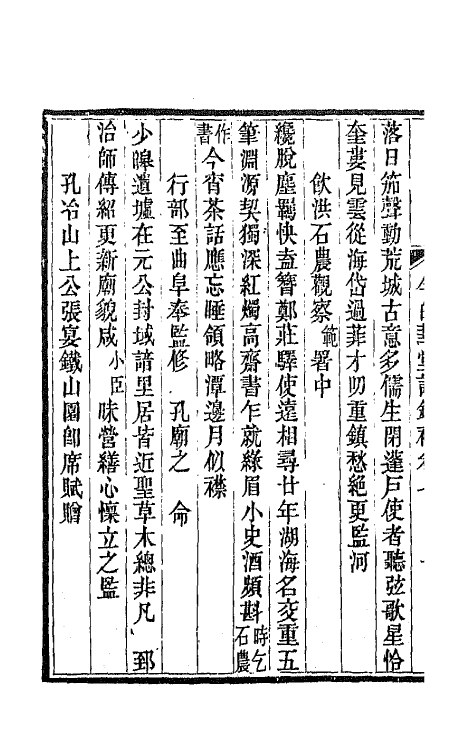 落日笳聲動荒城古意多儒生閉蓬戸使者聽弦歌星恰
奎婁見雲從海岱過菲才叨重鎮愁絶更監河
飲洪石農觀察範署中
纔脫塵羈快盍簪鄭莊驛使遠相尋廿年湖海名交重五
筆淵源契獨深紅燭高齋書乍就綠眉小史酒頻斟時乞石農
作書今宵茶話應忘睡領略潭邊月似襟
行部至曲阜奉監修 孔廟之 命
少皥遺墟在元公封域諳里居皆近聖草木總非凡 郅
治師傳紹更新廟貌咸小臣昧營繕心懍立之監
孔冶山上公張宴鐵山園卽席賦贈